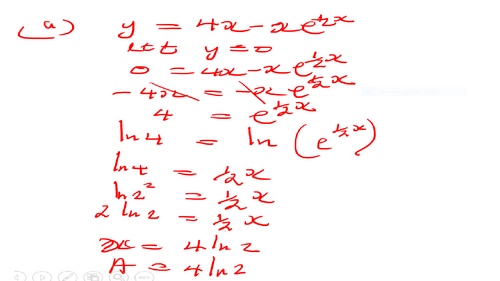 (a) y = 4x - xe^{½x}
let y = 0
0 = 4x - xe^{½x}
-4x = -xe^{½x}
4 = e^{½x}
ln 4 = ln (e^{½x})
ln 4 = ½x
ln 2² = ½x
2 ln 2 = ½x
x = 4 ln 2
A = 4 ln 2